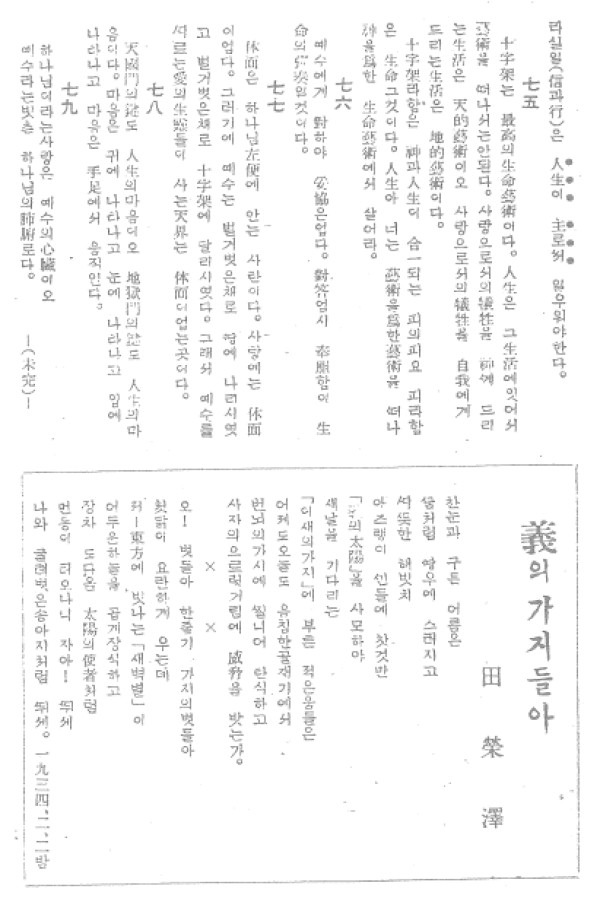 라실일(信과行)은 人生이 主로서 일우워야한다。
七五
十字架는 最高의生命藝術이다。人生은 그生活에잇어서
藝術을 떠나서는안된다。사랑으로서의犧牲을 神께 드리
는生活은 天的藝術이오 사랑으로서의犧牲을 自我에게
드리는生活은 地的藝術이다。
十字架라함은 神과人生이 合一되는 피의피요 피라함
은 生命그것이다。人生아 너는 藝術을爲한藝術을 떠나
神을爲한 生命藝術에서 살어라。
七六
예수에게 對하야 妥協은업다。對答업시 奉願함이 生
命의 일것이다。
七七
体面은 하나님左便에 안는 사람이다。사랑에는 体面
이업다。그러기에 예수는 벌거벗은채로 땅에 나리시엿
고 벌거벗은채로 十字架에 달리시엿다。그래서 예수를
따르는愛의生 들이 사는天界는 体面이업는곳이다。
七八
天國門의 도 人生의마음이오 地獄門의 도 人生의마
음이다。마음은 귀에 나라나고 눈에 나라나고 입에
나라나고 마음은 手足에서 움직인다。
七九
하나님이라는사랑은 예수의心臟이오
예수라는빗츤 하나님의肺腑로다。
—(未完)—
義의가지들아
田榮澤
찬눈과 구든 어름은
숨처럼 양우에 스러지고
따뜻한 해빗치
아즈랭이 언들에 찻것만
「義의太陽」을 사모하야
새날을 기다리는
「이새의가지」에 부른 적은움들은
어제도오늘도 음침한골재기에서
번뇌의가시에 찔니어 탄식하고
사자의으르렁거림에 威脅을 밧는가。
× ×
오！ 벗들아 한줄기 가지의벗들아
첫닭이 요란하게 우는데
저—東方에 빗나는「새벽별」이
어두운하늘을 곱게장식하고
장차 도다올 太陽의使者처럼
먼동이 터오나니 자아！ 뛰세
나와 굴레벗은송아지처럼 뛰세。一九三四、二、二밤